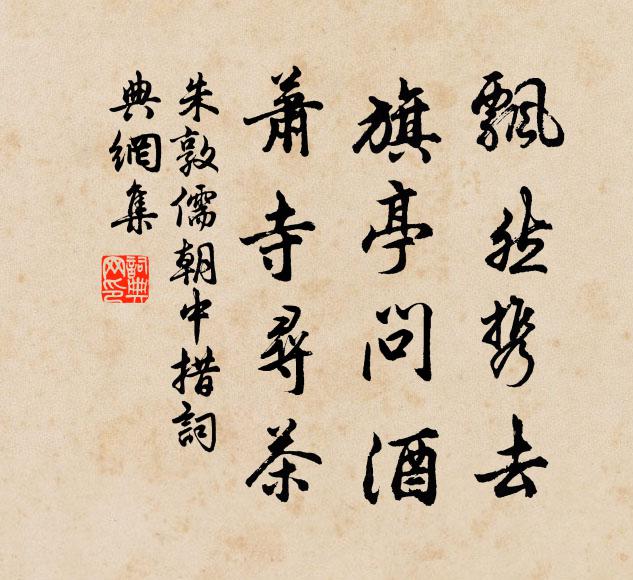 飄然携去
旗亭問酒
蕭寺尋茶
朱敦儒朝中措詞
典網集
詞典網印